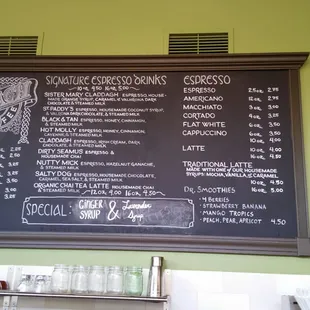 SIGNATURE ESPRESSO DRINKS
10 OZ. 4.50 16 OZ. 5.00
SISTER MARY CLADDAGH ESPRESSO, HOUSE-
MADE ORANGE SYRUP, CARAMEL & VALRHONA DARK
CHOCOLATE & STEAMED MILK
ST. PADDY'S ESPRESSO, HOUSEMADE COCONUT SYRUP,
& VALRHONA DARK CHOCOLATE, & STEAMED MILK
BLACK & TAN ESPRESSO, HONEY, CINNAMON,
& STEAMED MILK
HOT MOLLY ESPRESSO, HONEY, CINNAMON,
CAYENNE, & STEAMED MILK
CLADDAGH ESPRESSO, IRISH CREAM, DARK
CHOCOLATE, & STEAMED MILK
DIRTY SEAMUS ESPRESSO &
HOUSEMADE CHAI
NUTTY MICK ESPRESSO, HAZELNUT, GANACHE,
& STEAMED MILK
SALTY DOG ESPRESSO, HOUSEMADE CHOCOLATE,
CARAMEL, SEA SALT, & STEAMED MILK
ORGANIC CHAI TEA LATTE HOUSEMADE CHAI
& STEAMED MILK 12 OZ. 4.00 16 OZ. 4.50
SPECIAL: GINGER SYRUP & Lavender Syrup
ESPRESSO
ESPRESSO 2.5 OZ. 2.75
AMERICANO 12 OZ. 2.75
MACCHIATO 3 OZ.
CORTADO 4 OZ.
FLAT WHITE 6 OZ.
CAPPUCCINO 8 OZ.
LATTE 10 OZ.
16 OZ.
TRADITIONAL LATTE
MADE WITH ONE OF OUR HOUSEMADE
SYRUPS: MOCHA, VANILLA, & CARAMEL
10 OZ. 4.50
16 OZ. 5.00
DR. SMOOTHIES
· 4 BERRIES
· STRAWBERRY BANANA
· MANGO TROPICS
· PEACH, PEAR, APRICOT 4.50